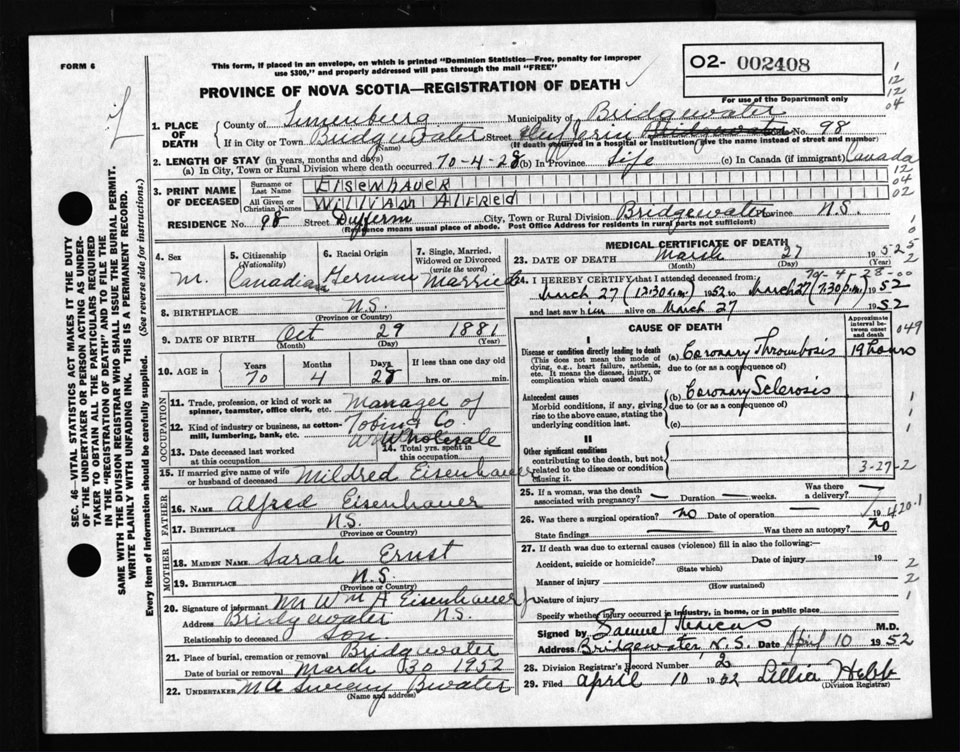 FORM 6
This form, if placed in an envelope, on which is printed "Dominion Statistics—Free, penalty for improper
use $300," and properly addressed will pass through the mail "FREE"
O2- 002408
For use of the Department only
PROVINCE OF NOVA SCOTIA—REGISTRATION OF DEATH
1. PLACE OF DEATH
County of Lunenburg Municipality of Bridgewater
If in City or Town Bridgewater Street No. 98
(Name) (If death occurred in a hospital or institution, give the name instead of street and number)
2. LENGTH OF STAY (in years, months and days)
(a) In City, Town or Rural Division where death occurred 70-4-28 (b) In Province Life (c) In Canada (if immigrant) Canada
3. PRINT NAME OF DECEASED
Surname or Last Name EISENHAUER
All Given or Christian Names WILLIAM ALFRED
RESIDENCE No. 98 Street Dufferin City, Town or Rural Division Bridgewater Province N.S.
(Residence means usual place of abode. Post Office Address for residents in rural parts not sufficient)
4. Sex M.
5. Citizenship (Nationality) Canadian
6. Racial Origin German
7. Single, Married, Widowed or Divorced (write the word) Married
8. BIRTHPLACE N.S.
(Province or Country)
9. DATE OF BIRTH Oct 29 1881
(Month) (Day) (Year)
10. AGE in Years 70 Months 4 Days 28 If less than one day old hrs. or min.
OCCUPATION
11. Trade, profession, or kind of work as spinner, teamster, office clerk, etc. Manager of
12. Kind of industry or business, as cotton-mill, lumbering, bank, etc. Co. Wholesale
13. Date deceased last worked at this occupation
14. Total yrs. spent in this occupation
15. If married give name of wife or husband of deceased Mildred Eisenhauer
FATHER
16. NAME Alfred Eisenhauer
17. BIRTHPLACE N.S.
(Province or Country)
MOTHER
18. MAIDEN NAME Sarah Ernst
19. BIRTHPLACE N.S.
(Province or Country)
20. Signature of informant Mr Wm A Eisenhauer Jr
Address Bridgewater N.S.
Relationship to deceased Son.
21. Place of burial, cremation or removal Bridgewater
Date of burial or removal March 30 1952
22. UNDERTAKER
(Name and address)
MEDICAL CERTIFICATE OF DEATH
23. DATE OF DEATH March 27 1952
(Month) (Day) (Year)
70-4-28-00
24. I HEREBY CERTIFY that I attended deceased from:
March 27 (12.30 a.m.) 1952 to March 27 (7.30 p.m.) 1952
and last saw him alive on March 27 1952
CAUSE OF DEATH
Approximate interval between onset and death
049
I
Disease or condition directly leading to death
(This does not mean the mode of dying, e.g., heart failure, asthenia, etc. It means the disease, injury, or complication which caused death.)
(a) Coronary Thrombosis 19 hours
due to (or as a consequence of)
Antecedent causes
Morbid conditions, if any, giving rise to the above cause, stating the underlying condition last.
(b) Coronary Sclerosis
due to (or as a consequence of)
(c)
II
Other significant conditions
contributing to the death, but not related to the disease or condition causing it.
3-27-2
25. If a woman, was the death associated with pregnancy? — Duration — weeks. Was there a delivery? —
26. Was there a surgical operation? no Date of operation — 19
420.1
State findings Was there an autopsy? no
27. If death was due to external causes (violence) fill in also the following:—
Accident, suicide or homicide? Date of injury 19
(State which)
Manner of injury
(How sustained)
Nature of injury
Specify whether injury occurred in industry, in home, or in public place
Signed by Samuel M.D.
Address Bridgewater, N.S. Date April 10 1952
28. Division Registrar's Record Number 2
29. Filed April 10 1952 Lillia Hebb
(Division Registrar)
SEC. 46—VITAL STATISTICS ACT MAKES IT THE DUTY
OF THE UNDERTAKER OR PERSON ACTING AS UNDER-
TAKER TO OBTAIN ALL THE PARTICULARS REQUIRED
IN THE "REGISTRATION OF DEATH" AND TO FILE THE
SAME WITH THE DIVISION REGISTRAR WHO SHALL ISSUE THE BURIAL PERMIT.
WRITE PLAINLY WITH UNFADING INK. THIS IS A PERMANENT RECORD.
Every item of information should be carefully supplied. (See reverse side for instructions.)